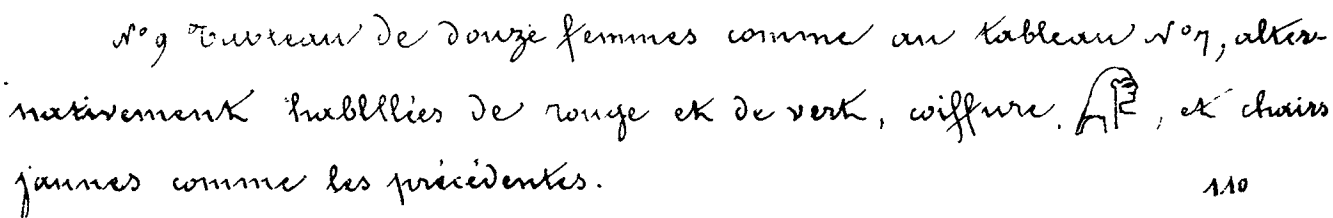 N° 9 Tableau de douze femmes comme au tableau N° 7, alter-
nativement habllliées de rouge et de vert, coiffure, , et chairs
jaunes comme les précédentes.
110